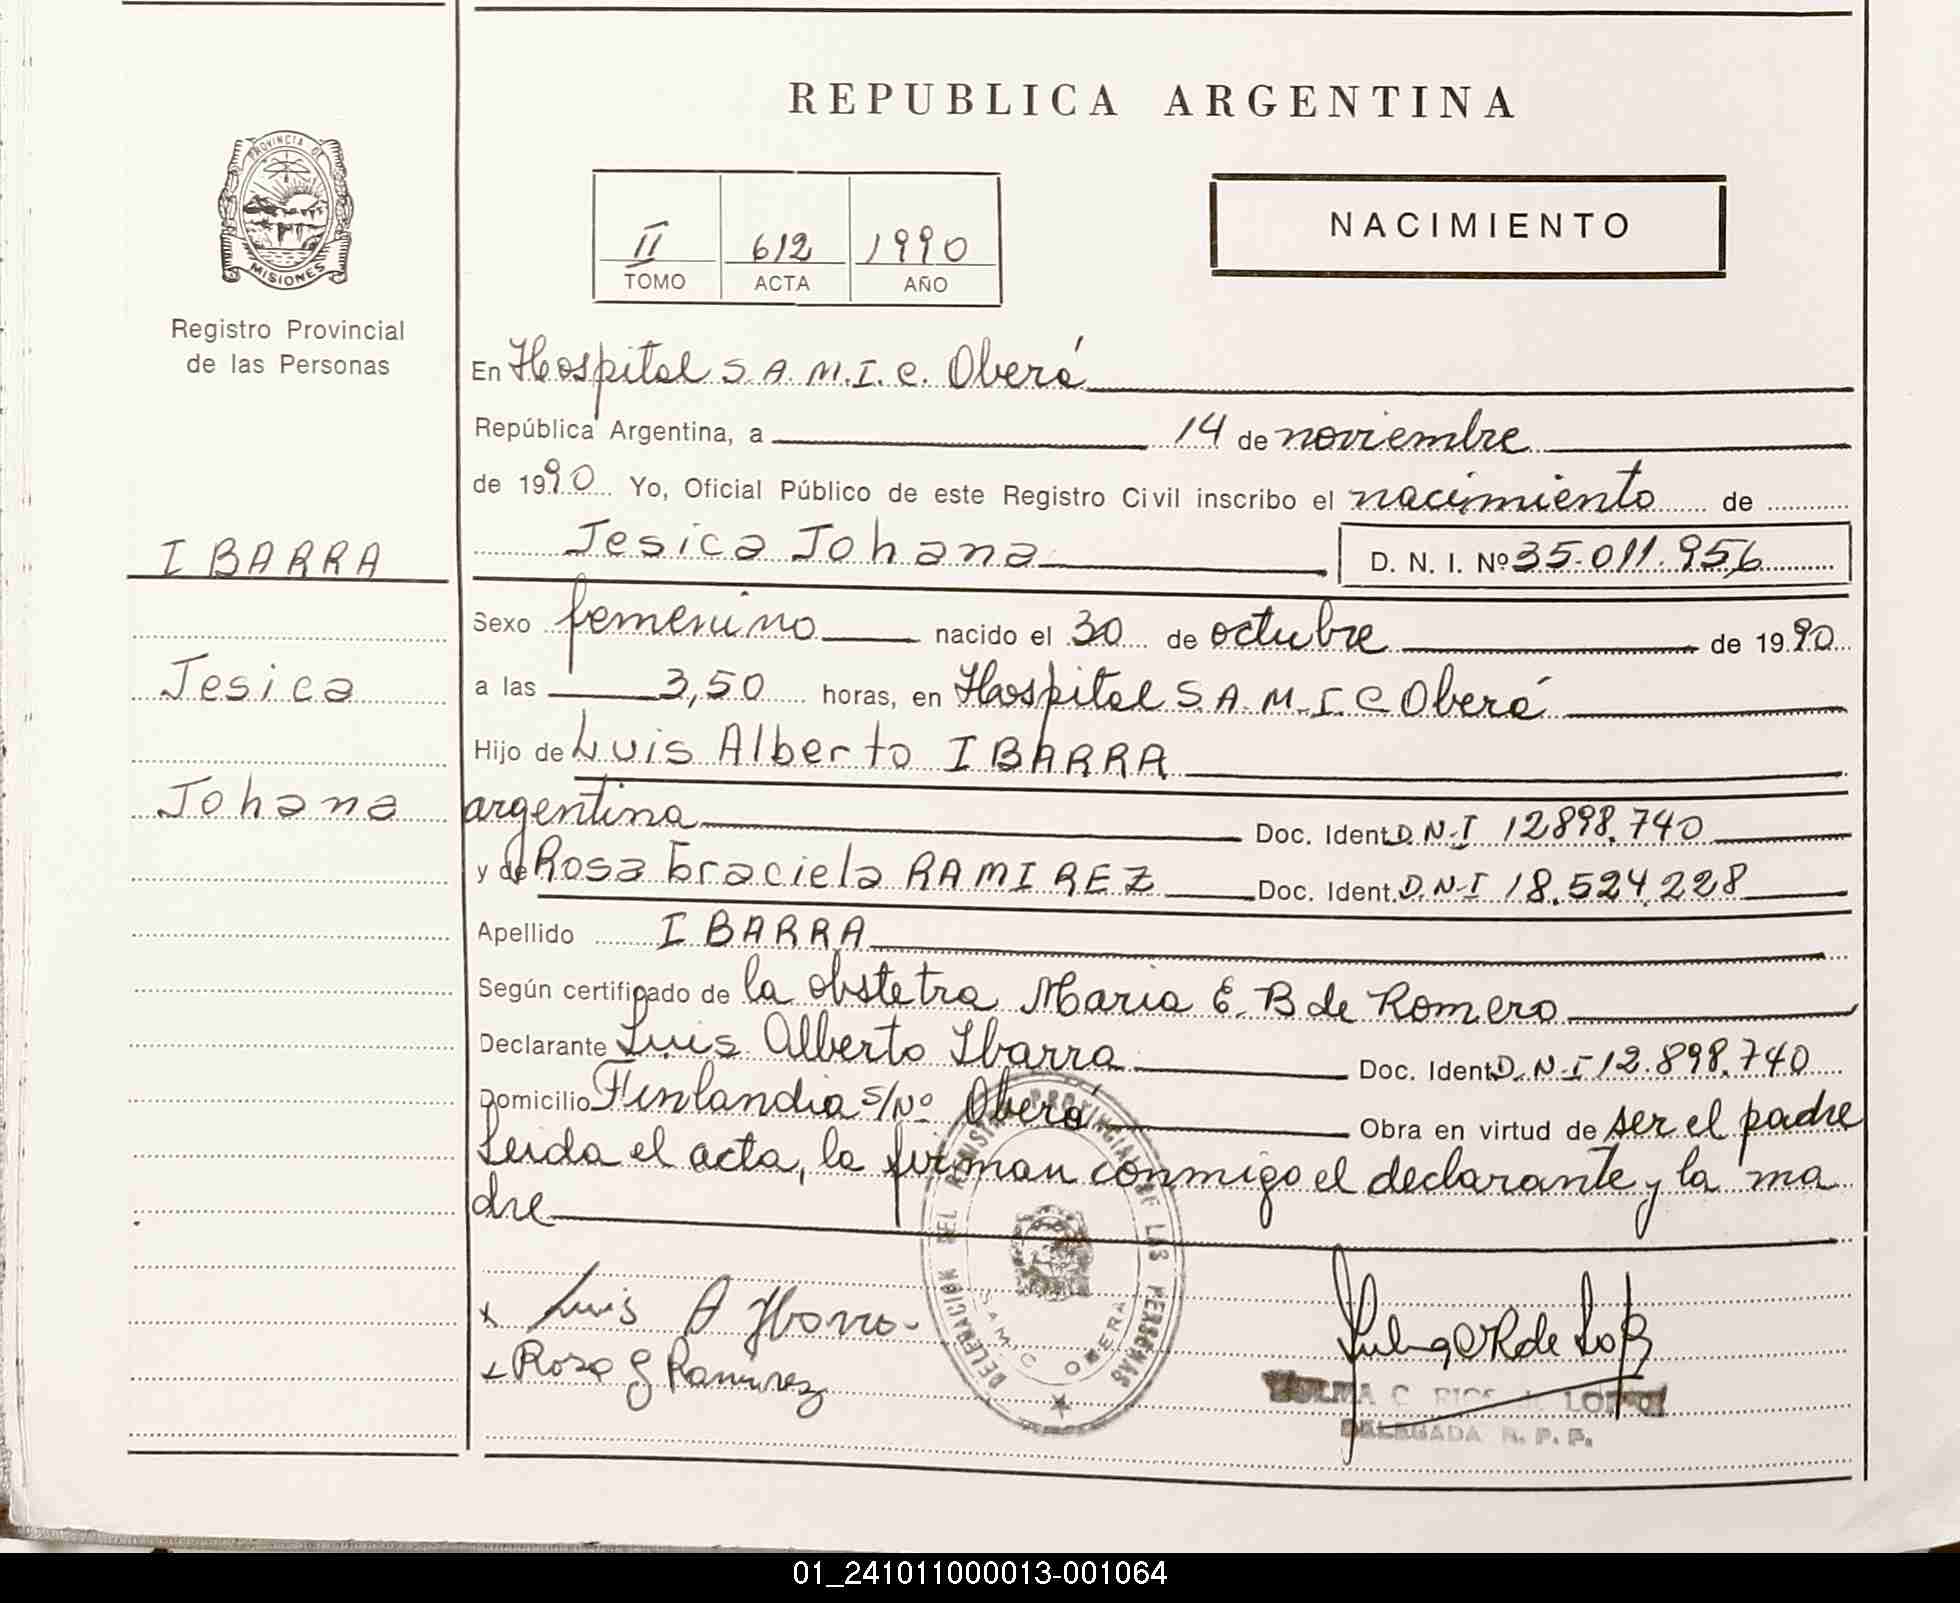 REPUBLICA ARGENTINA
PROVINCIA DE
MISIONES
Registro Provincial
de las Personas
II 612 1990
TOMO ACTA AÑO
NACIMIENTO
IBARRA
Jesica
Johana
En Hospital S.A.M.I.C. Oberá
República Argentina, a 14 de noviembre
de 1990 Yo, Oficial Público de este Registro Civil inscribo el nacimiento de
Jesica Johana D. N. I. Nº 35.011.956
Sexo femenino nacido el 30 de octubre de 1990
a las 3,50 horas, en Hospital S.A.M.I.C Oberá
Hijo de Luis Alberto IBARRA
argentina Doc. Ident. D.N.I 12898.740
y de Rosa Graciela RAMIREZ Doc. Ident. D.N.I 18.524.228
Apellido IBARRA
Según certificado de la obstetra Maria E. B de Romero
Declarante Luis Alberto Ibarra Doc. Ident. D.N.I 12.898.740
Domicilio Finlandia s/Nº Oberá Obra en virtud de ser el padre
Leida el acta, la firman conmigo el declarante y la ma
dre
x Luis A Ibarra
x Rosa G Ramirez
DELEGACION DEL REGISTRO PROVINCIAL DE LAS PERSONAS
SAMIC OBERA
ZULMA C. RIOS LOPEZ
DELEGADA R. P. P.
01_241011000013-001064